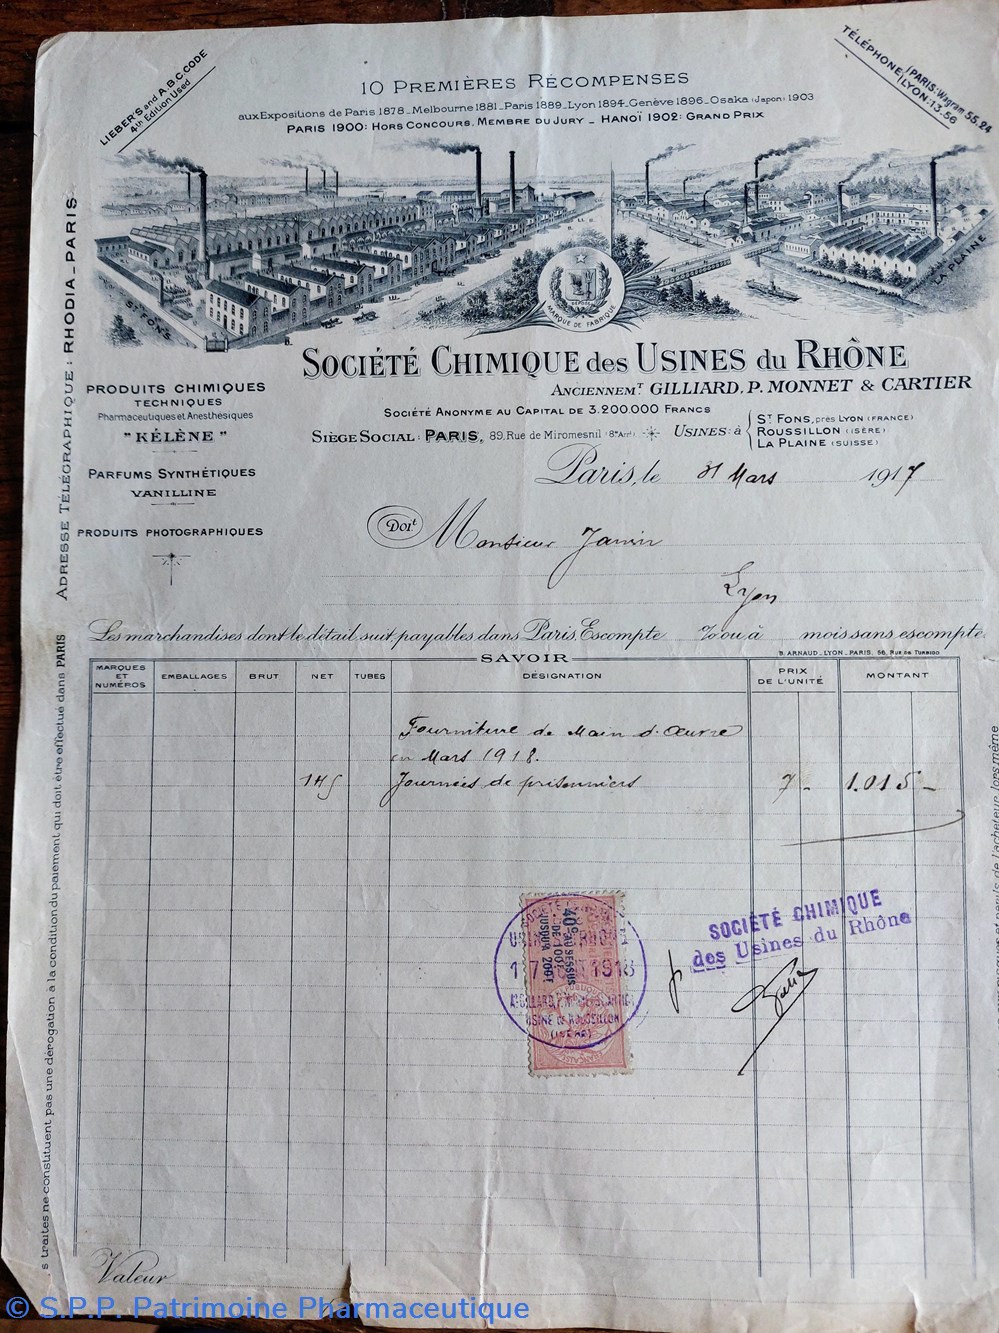 LIEBER'S and A.B.C. CODE
4th Edition Used
10 PREMIÈRES RÉCOMPENSES
aux Expositions de Paris 1878_Melbourne 1881_Paris 1889_Lyon 1894_Genève 1896_Osaka (Japon) 1903
PARIS 1900: HORS CONCOURS, MEMBRE DU JURY _ HANOÏ 1902: GRAND PRIX
TÉLÉPHONE
PARIS: Wagram 55.24
LYON: 13.56
ST FONS
LA PLAINE
DÉPOSÉ
MARQUE DE FABRIQUE
SOCIÉTÉ CHIMIQUE des USINES du RHÔNE
ANCIENNEMT GILLIARD, P. MONNET & CARTIER
SOCIÉTÉ ANONYME AU CAPITAL DE 3.200.000 FRANCS
SIÈGE SOCIAL: PARIS, 89, Rue de Miromesnil (8e Arrt)
USINES: à
ST FONS, près LYON (FRANCE)
ROUSSILLON (ISÈRE)
LA PLAINE (SUISSE)
ADRESSE TÉLÉGRAPHIQUE: RHODIA_PARIS
PRODUITS CHIMIQUES
TECHNIQUES
Pharmaceutiques et Anesthésiques
"KÉLÈNE"
PARFUMS SYNTHÉTIQUES
VANILLINE
PRODUITS PHOTOGRAPHIQUES
Paris, le 31 Mars 1917
Doit Monsieur Janin
Lyon
Les marchandises dont le détail suit payables dans Paris, Escompte % ou à mois sans escompte.
B. ARNAUD_LYON_PARIS, 56, RUE DE TURBIGO
SAVOIR
MARQUES ET NUMÉROS
EMBALLAGES
BRUT
NET
TUBES
DÉSIGNATION
PRIX DE L'UNITÉ
MONTANT
Fourniture de Main d'Œuvre
en Mars 1918.
145 Journées de prisonniers 7 - 1.015 -
40c AU DESSUS
DE 100F
JUSQU'À 200F
USINE DE ROUSSILLON
(ISÈRE)
SOCIÉTÉ CHIMIQUE
des Usines du Rhône
s traites ne constituent pas une dérogation à la condition du paiement qui doit être effectué dans PARIS
de l'acheteur lors même
Valeur
© S.P.P. Patrimoine Pharmaceutique